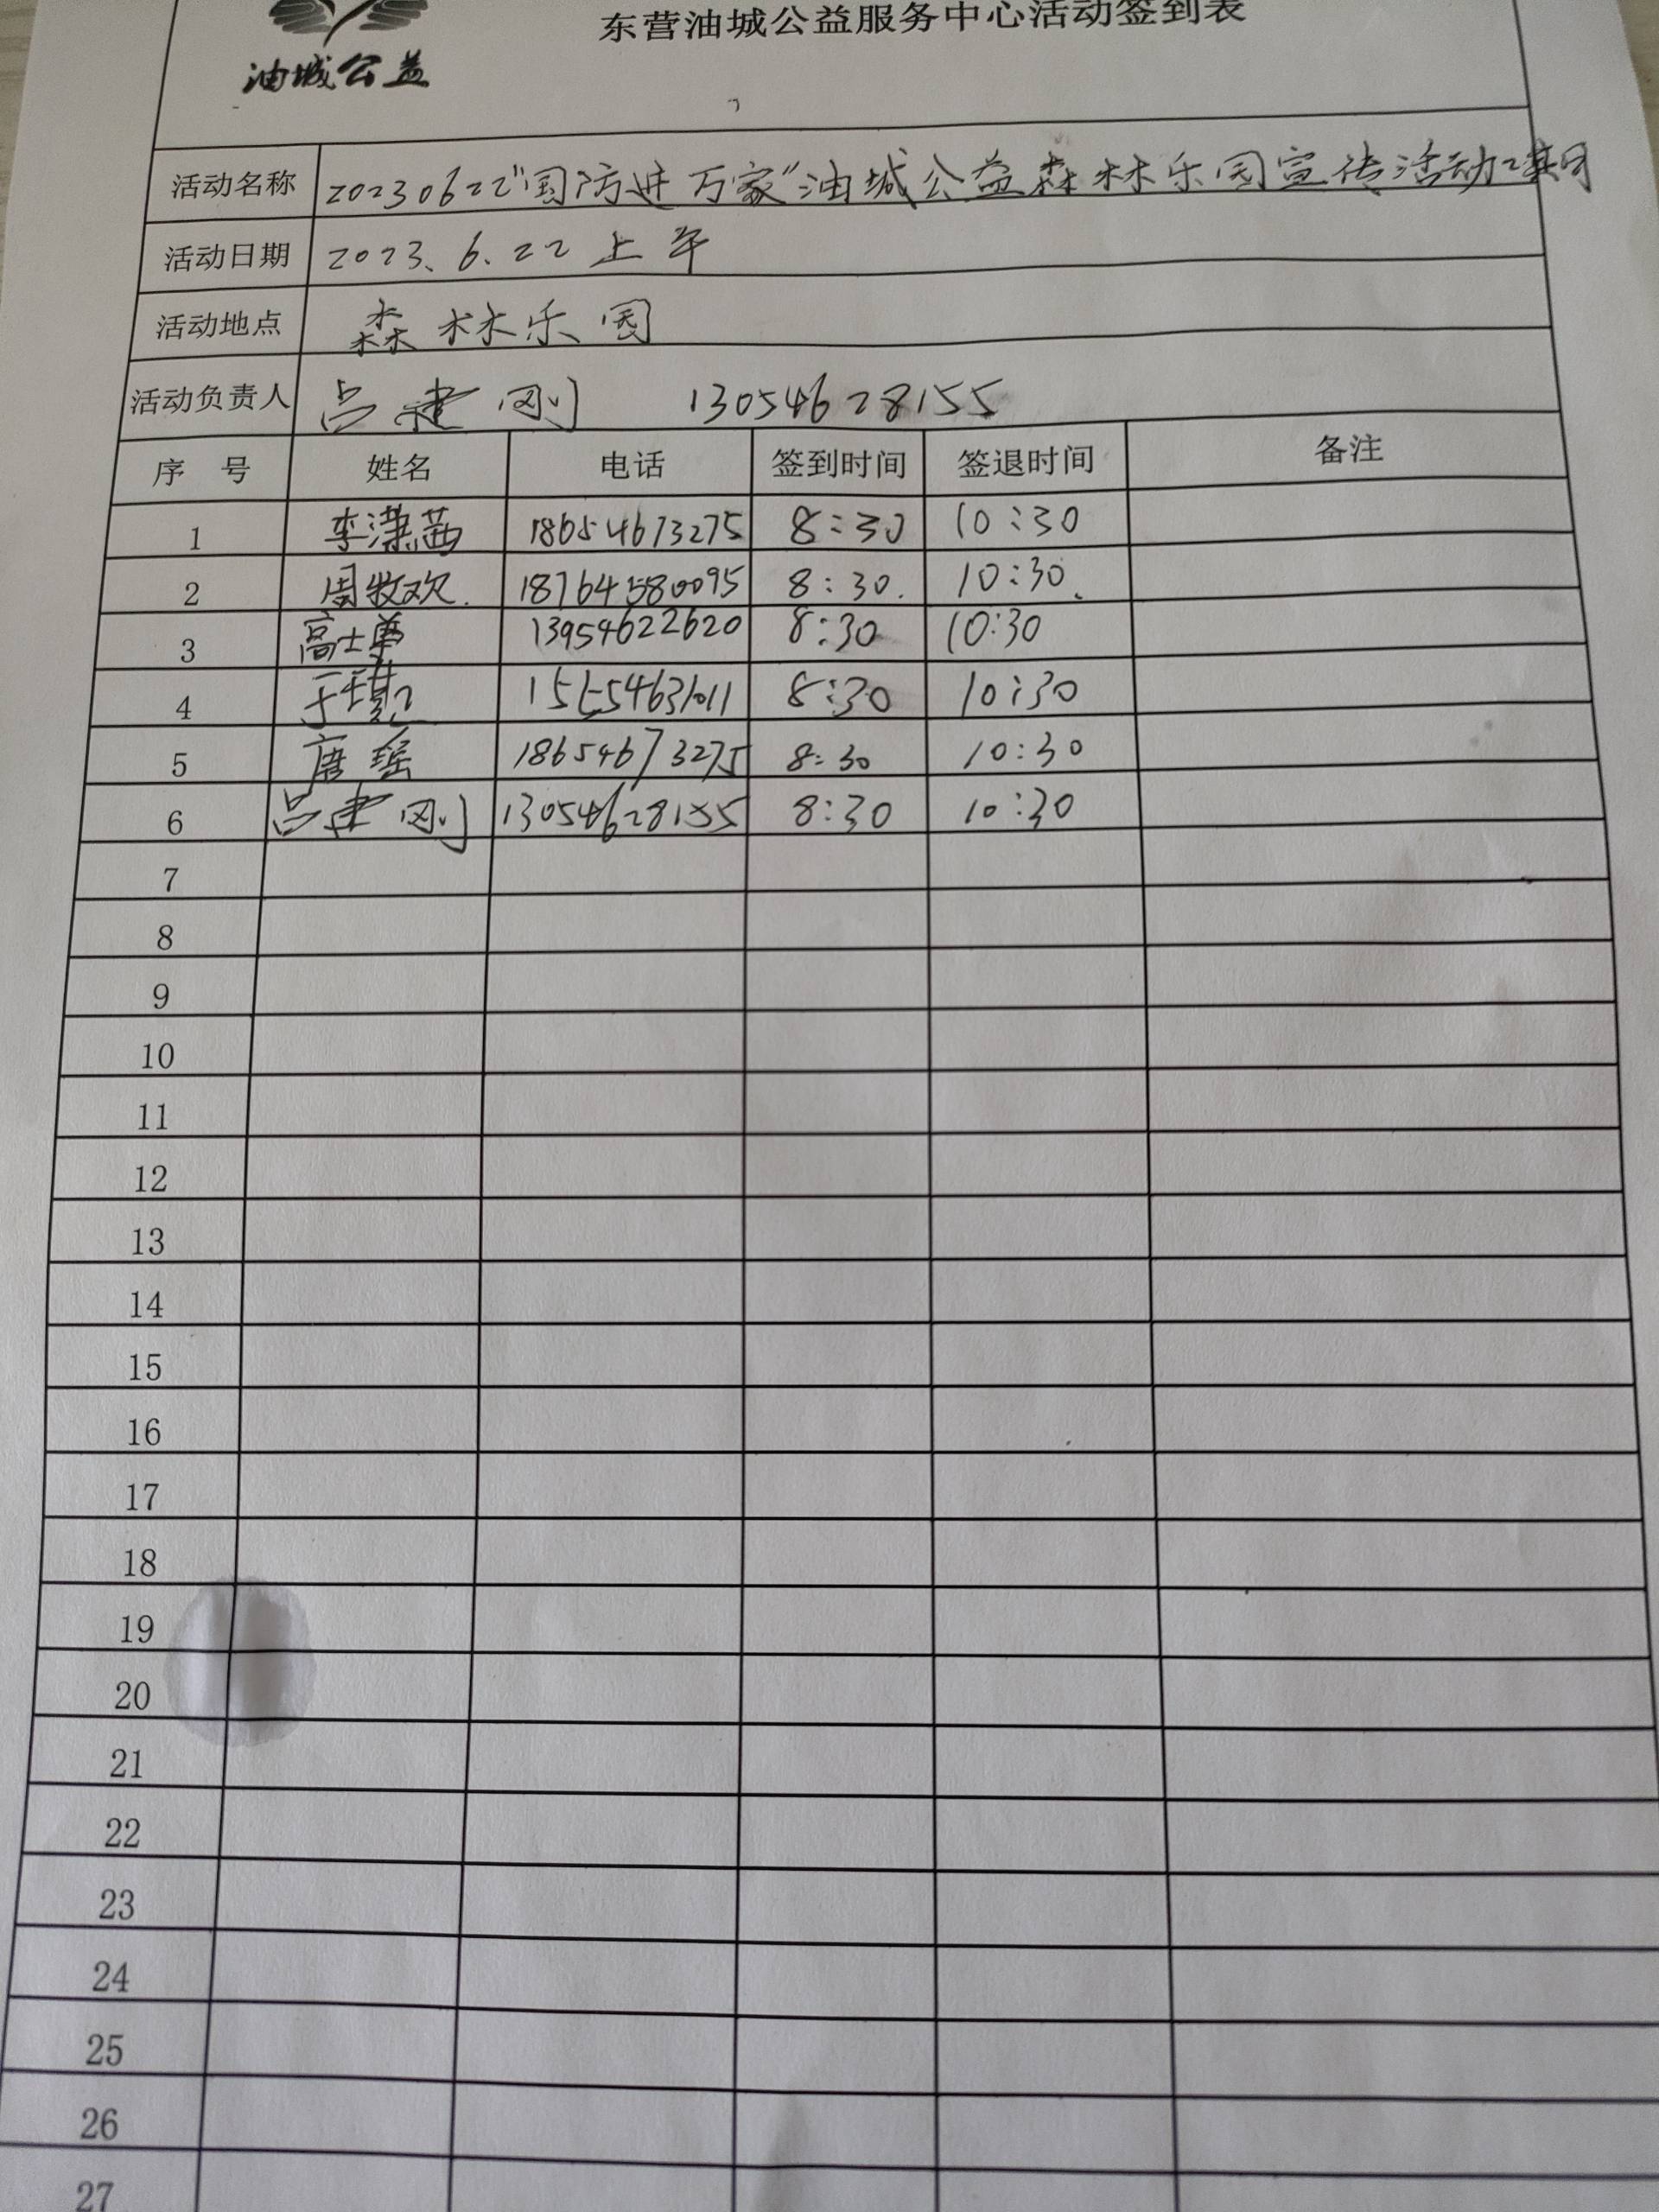 东营油城公益服务中心活动签到表
油城公益
活动名称 20230622"国防进万家"油城公益森林乐园宣传活动2期
活动日期 2023.6.22上午
活动地点 森林乐园
活动负责人 吕建刚 13054628155
序 号 姓名 电话 签到时间 签退时间 备注
1 李潇茜 18654673275 8:30 10:30
2 周牧欢. 18764580095 8:30. 10:30.
3 高士 13954622620 8:30 10:30
4 于 8:30 10:30
5 唐瑶 18654673275 8:30 10:30
6 吕建刚 13054628155 8:30 10:30
7
8
9
10
11
12
13
14
15
16
17
18
19
20
21
22
23
24
25
26
27